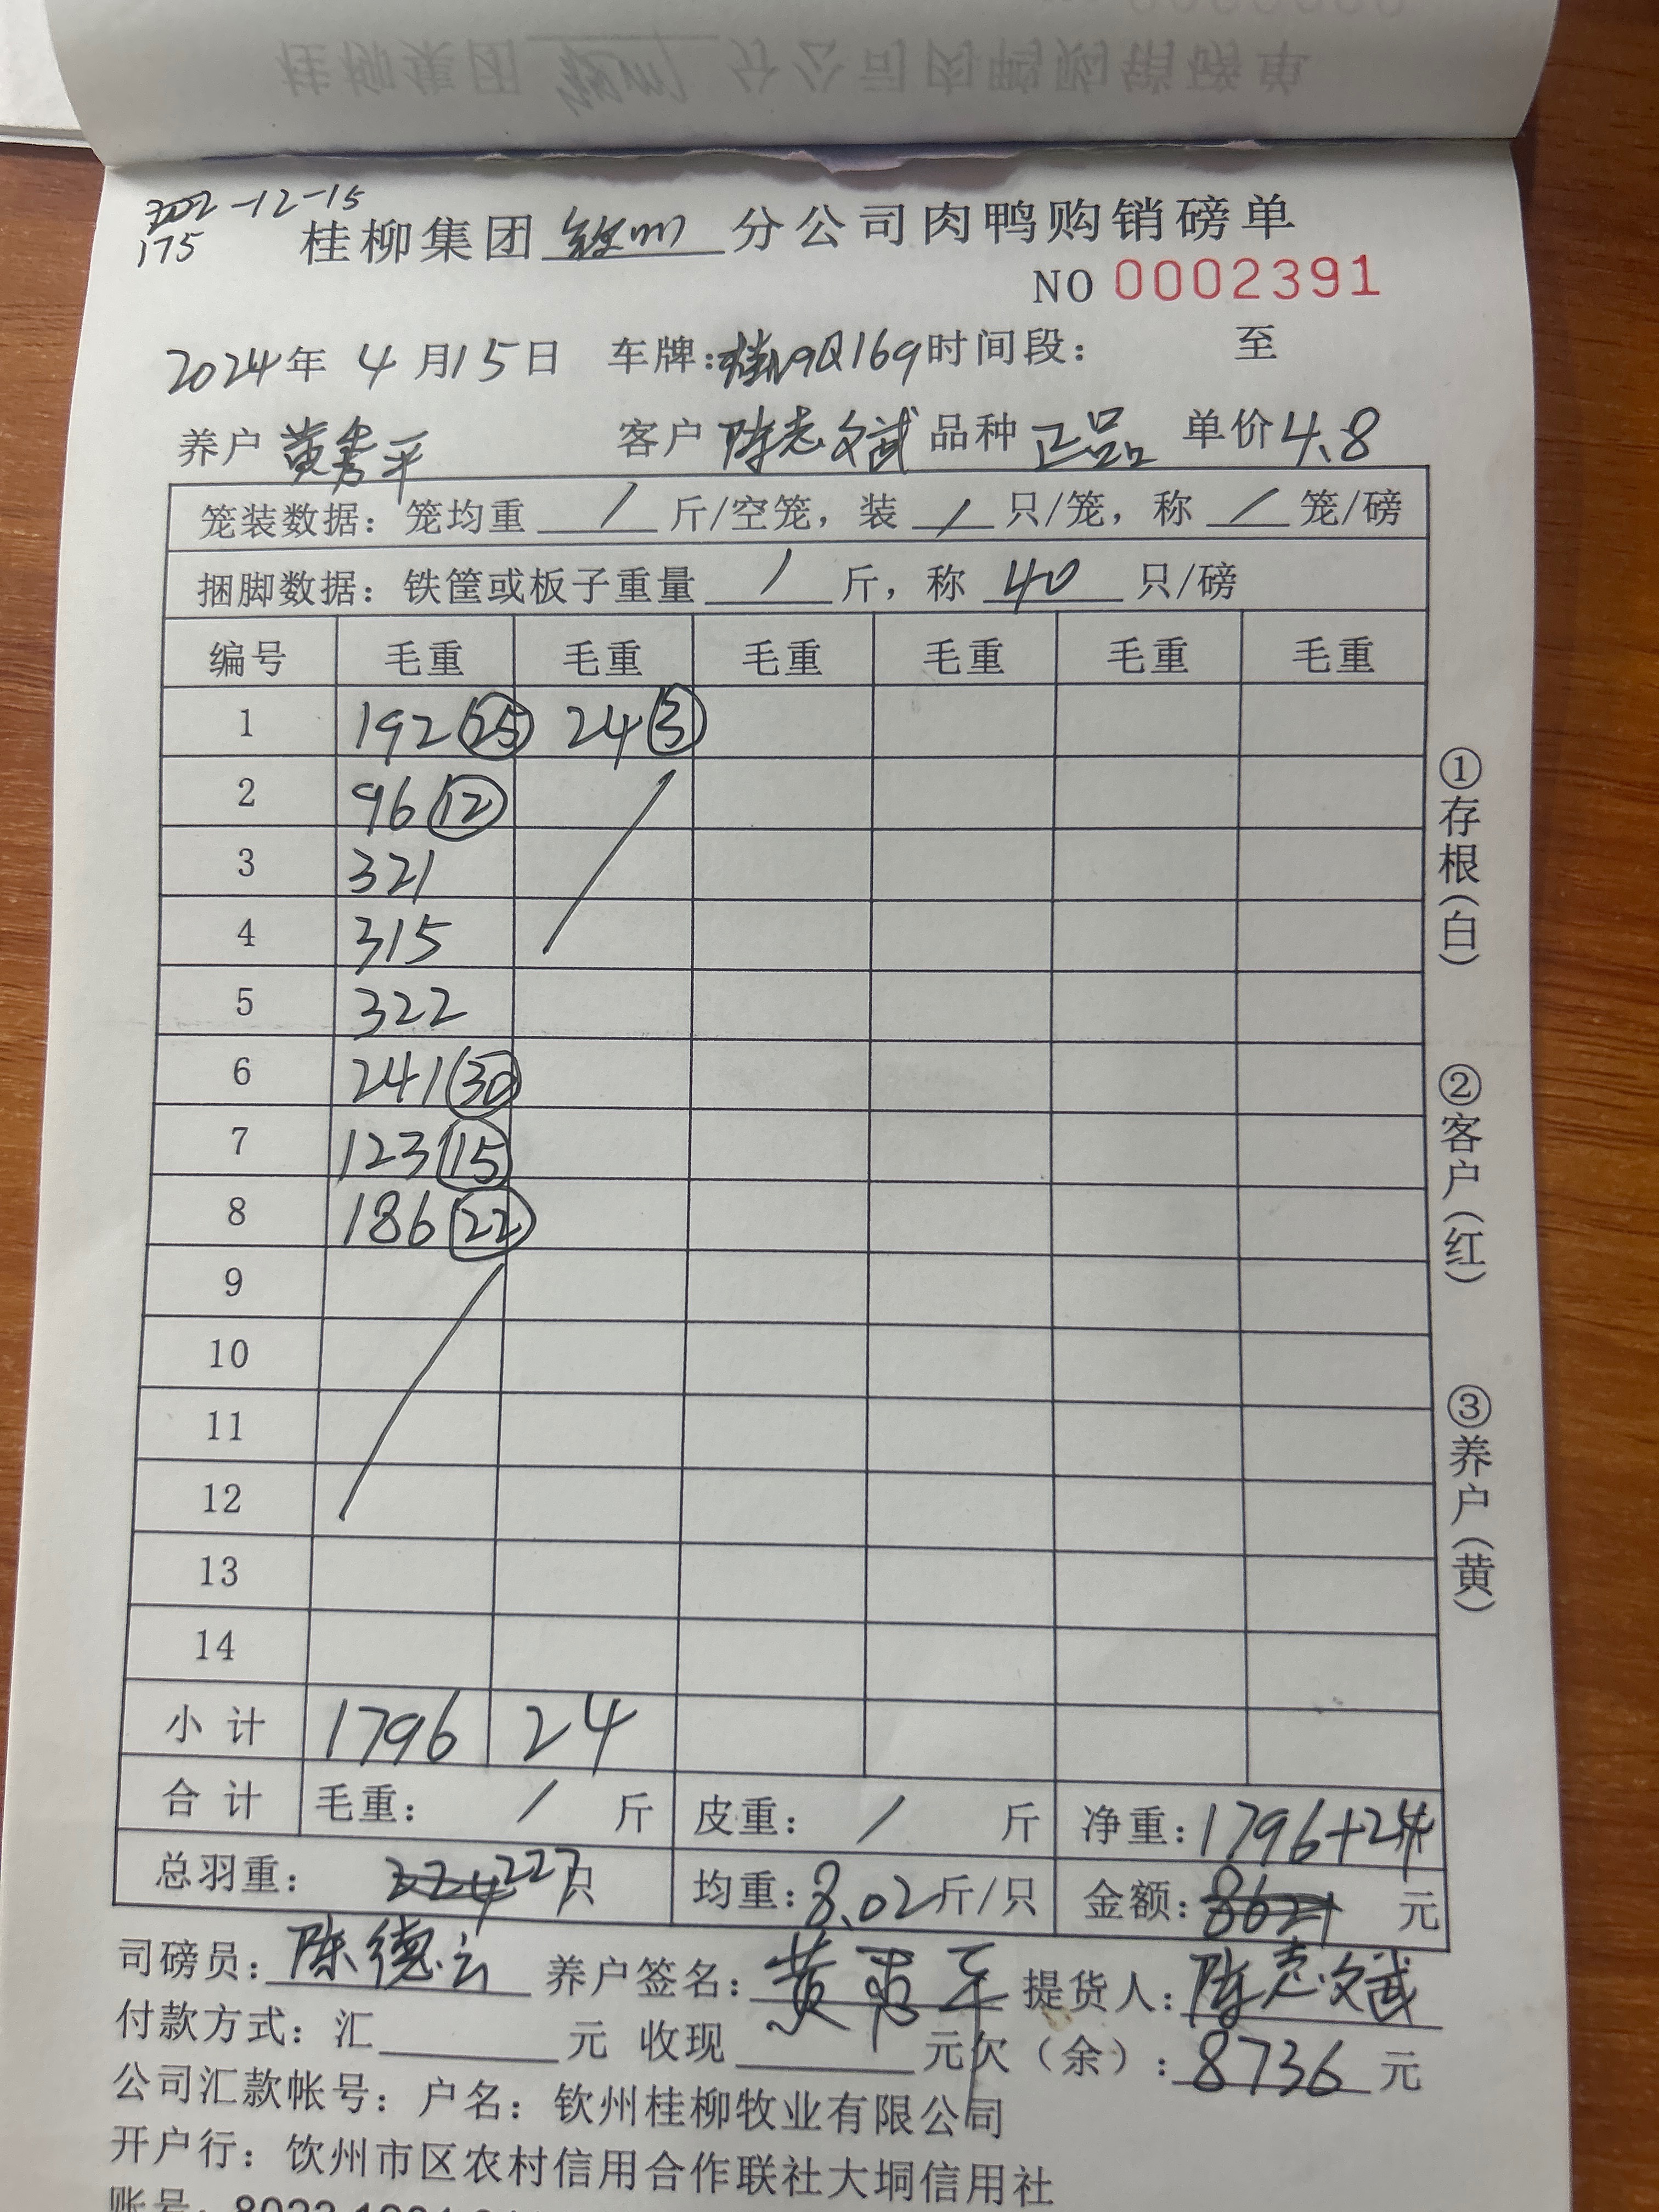 -12-15
175
桂柳集团钦州分公司肉鸭购销磅单
NO 0002391
2024年 4月15日 车牌: 169时间段: 至
养户 黄秀平 客户 陈志文斌 品种 正品 单价4.8
笼装数据: 笼均重 / 斤/空笼, 装 / 只/笼, 称 / 笼/磅
捆脚数据: 铁筐或板子重量 / 斤, 称 40 只/磅
编号 毛重 毛重 毛重 毛重 毛重 毛重
1 192(25) 24(3)
2 96(12)
3 321
4 315
5 322
6 241(30)
7 123(15)
8 186(22)
9
10
11
12
13
14
小计 1796 24
合计 毛重: / 斤 皮重: / 斤 净重:1796+24
总羽重: 224 227只 均重:8.02斤/只 金额:8621 元
司磅员:陈德云 养户签名:黄秀平 提货人:陈志文斌
付款方式: 汇 元 收现 元欠(余):8736 元
公司汇款帐号: 户名: 钦州桂柳牧业有限公司
开户行: 饮州市区农村信用合作联社大垌信用社
账号:
①存根(白)
②客户(红)
③养户(黄)